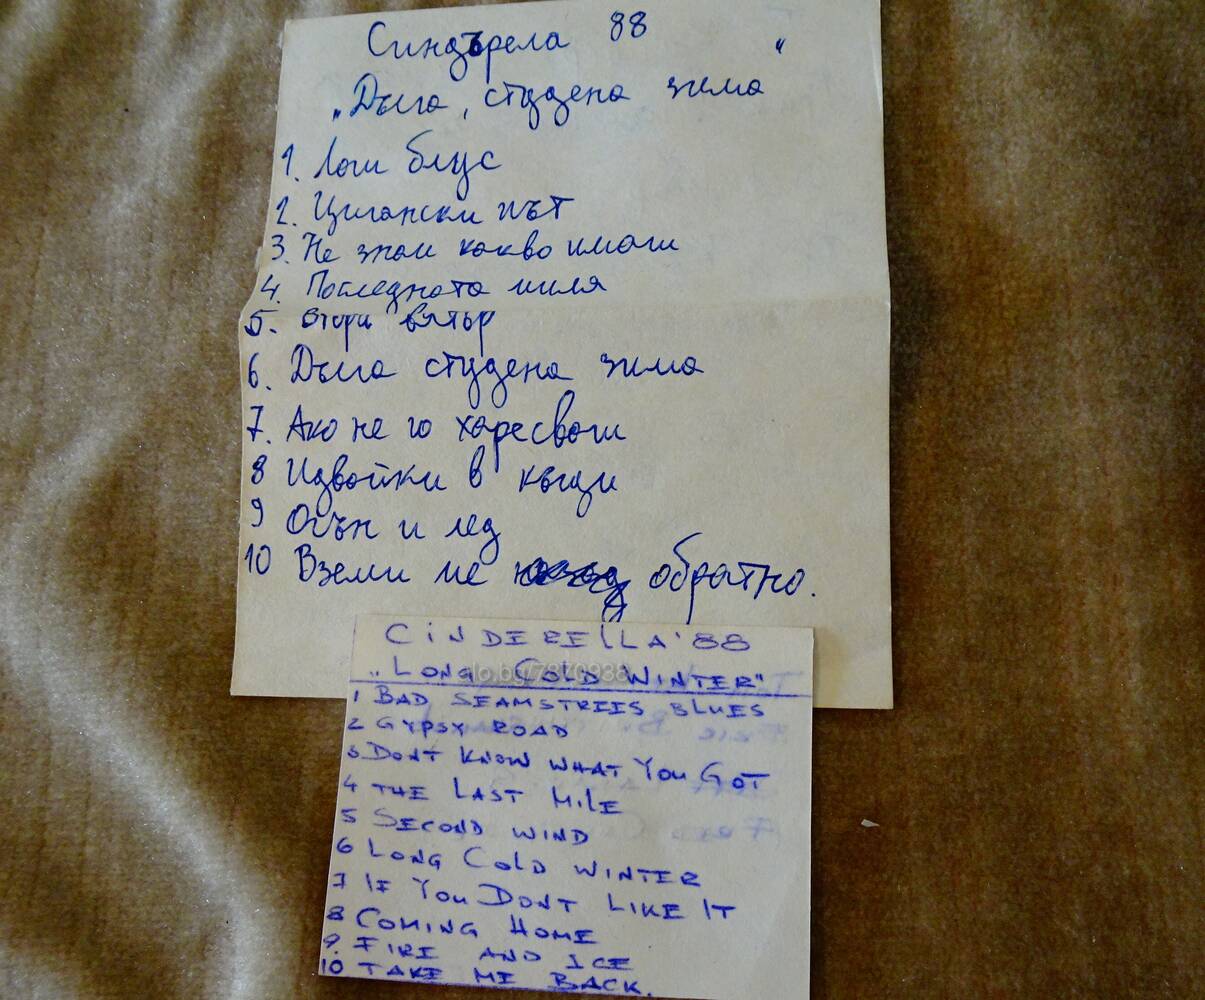 Синдърела 88
„Дълга, студена зима"
1. Лош блус
2. Цигански път
3. Не знам какво имаш
4. Последната миля
5. Втори вятър
6. Дълга студена зима
7. Ако не го харесваш
8 Идвайки в къщи
9 Огън и лед
10 Вземи ме обратно.
CINDERELLA'88
„LONG COLD WINTER"
alo.bg/7870938
1 BAD SEAMSTREES BLUES
2 GYPSY ROAD
3 DONT KNOW WHAT YOU GOT
4 THE LAST MILE
5 SECOND WIND
6 LONG COLD WINTER
7 IF YOU DONT LIKE IT
8 COMING HOME
9. FIRE AND ICE
10 TAKE ME BACK.